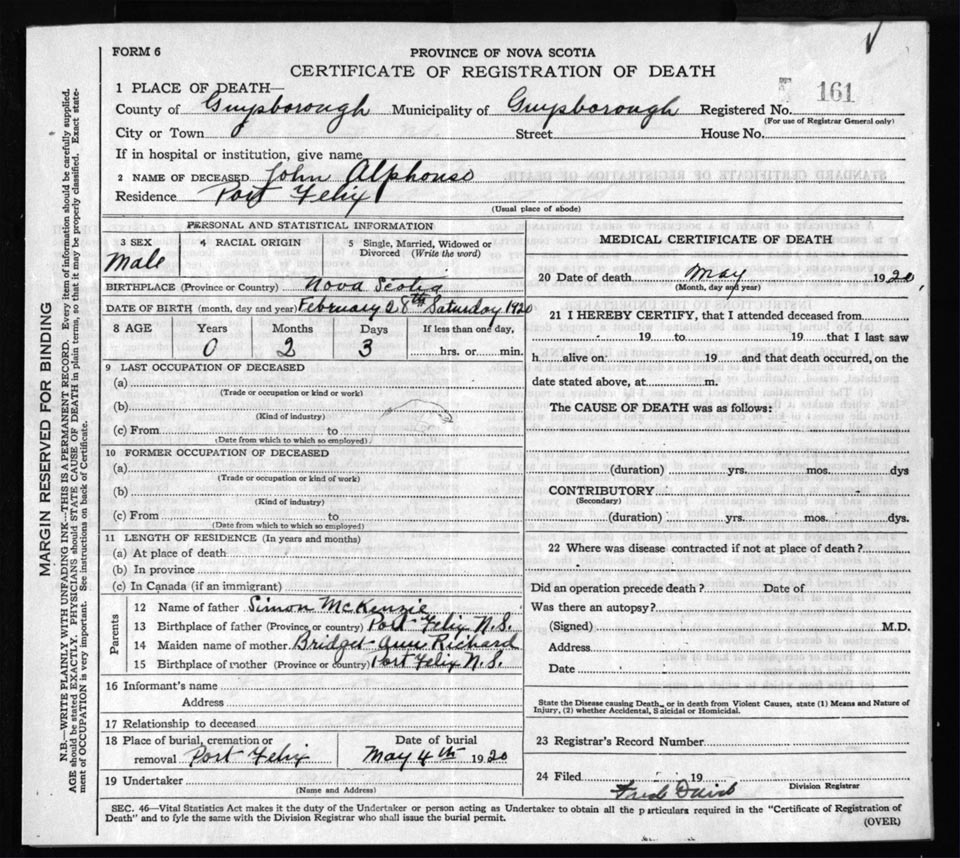 FORM 6
PROVINCE OF NOVA SCOTIA
CERTIFICATE OF REGISTRATION OF DEATH
1 PLACE OF DEATH—
161
County of Guysborough Municipality of Guysborough Registered No.
(For use of Registrar General only)
City or Town Street House No.
If in hospital or institution, give name
2 NAME OF DECEASED John Alphonso
Residence Port Felix
(Usual place of abode)
PERSONAL AND STATISTICAL INFORMATION
3 SEX Male
4 RACIAL ORIGIN
5 Single, Married, Widowed or Divorced (Write the word)
BIRTHPLACE (Province or Country) Nova Scotia
DATE OF BIRTH (month, day and year) February 28th Saturday 1920
8 AGE Years Months Days If less than one day,
0 2 3 hrs. or min.
9 LAST OCCUPATION OF DECEASED
(a)
(Trade or occupation or kind or work)
(b)
(Kind of industry)
(c) From to
(Date from which to which so employed)
10 FORMER OCCUPATION OF DECEASED
(a)
(Trade or occupation or kind of work)
(b)
(Kind of industry)
(c) From to
(Date from which to which so employed)
11 LENGTH OF RESIDENCE (In years and months)
(a) At place of death
(b) In province
(c) In Canada (if an immigrant)
Parents
12 Name of father Simon McKenzie
13 Birthplace of father (Province or country) Port Felix N.S.
14 Maiden name of mother Bridget Ann Richard
15 Birthplace of mother (Province or country) Port Felix N.S.
16 Informant's name
Address
17 Relationship to deceased
18 Place of burial, cremation or Date of burial
removal Port Felix May 4th 1920
19 Undertaker
(Name and Address)
MEDICAL CERTIFICATE OF DEATH
20 Date of death May 1920
(Month, day and year)
21 I HEREBY CERTIFY, that I attended deceased from
19 to 19 that I last saw
h alive on 19 and that death occurred, on the
date stated above, at m.
The CAUSE OF DEATH was as follows:
(duration) yrs. mos. dys
CONTRIBUTORY
(Secondary)
(duration) yrs. mos. dys.
22 Where was disease contracted if not at place of death?
Did an operation precede death? Date of
Was there an autopsy?
(Signed) M.D.
Address
Date
State the Disease causing Death, or in death from Violent Causes, state (1) Means and Nature of
Injury, (2) whether Accidental, Suicidal or Homicidal.
23 Registrar's Record Number
24 Filed 19
Division Registrar
SEC. 46—Vital Statistics Act makes it the duty of the Undertaker or person acting as Undertaker to obtain all the particulars required in the "Certificate of Registration of
Death" and to fyle the same with the Division Registrar who shall issue the burial permit.
(OVER)
MARGIN RESERVED FOR BINDING
N.B.—WRITE PLAINLY WITH UNFADING INK—THIS IS A PERMANENT RECORD. Every item of information should be carefully supplied.
AGE should be stated EXACTLY. PHYSICIANS should STATE CAUSE OF DEATH in plain terms, so that it may be properly classified. Exact state-
ment of OCCUPATION is very important. See instructions on back of Certificate.